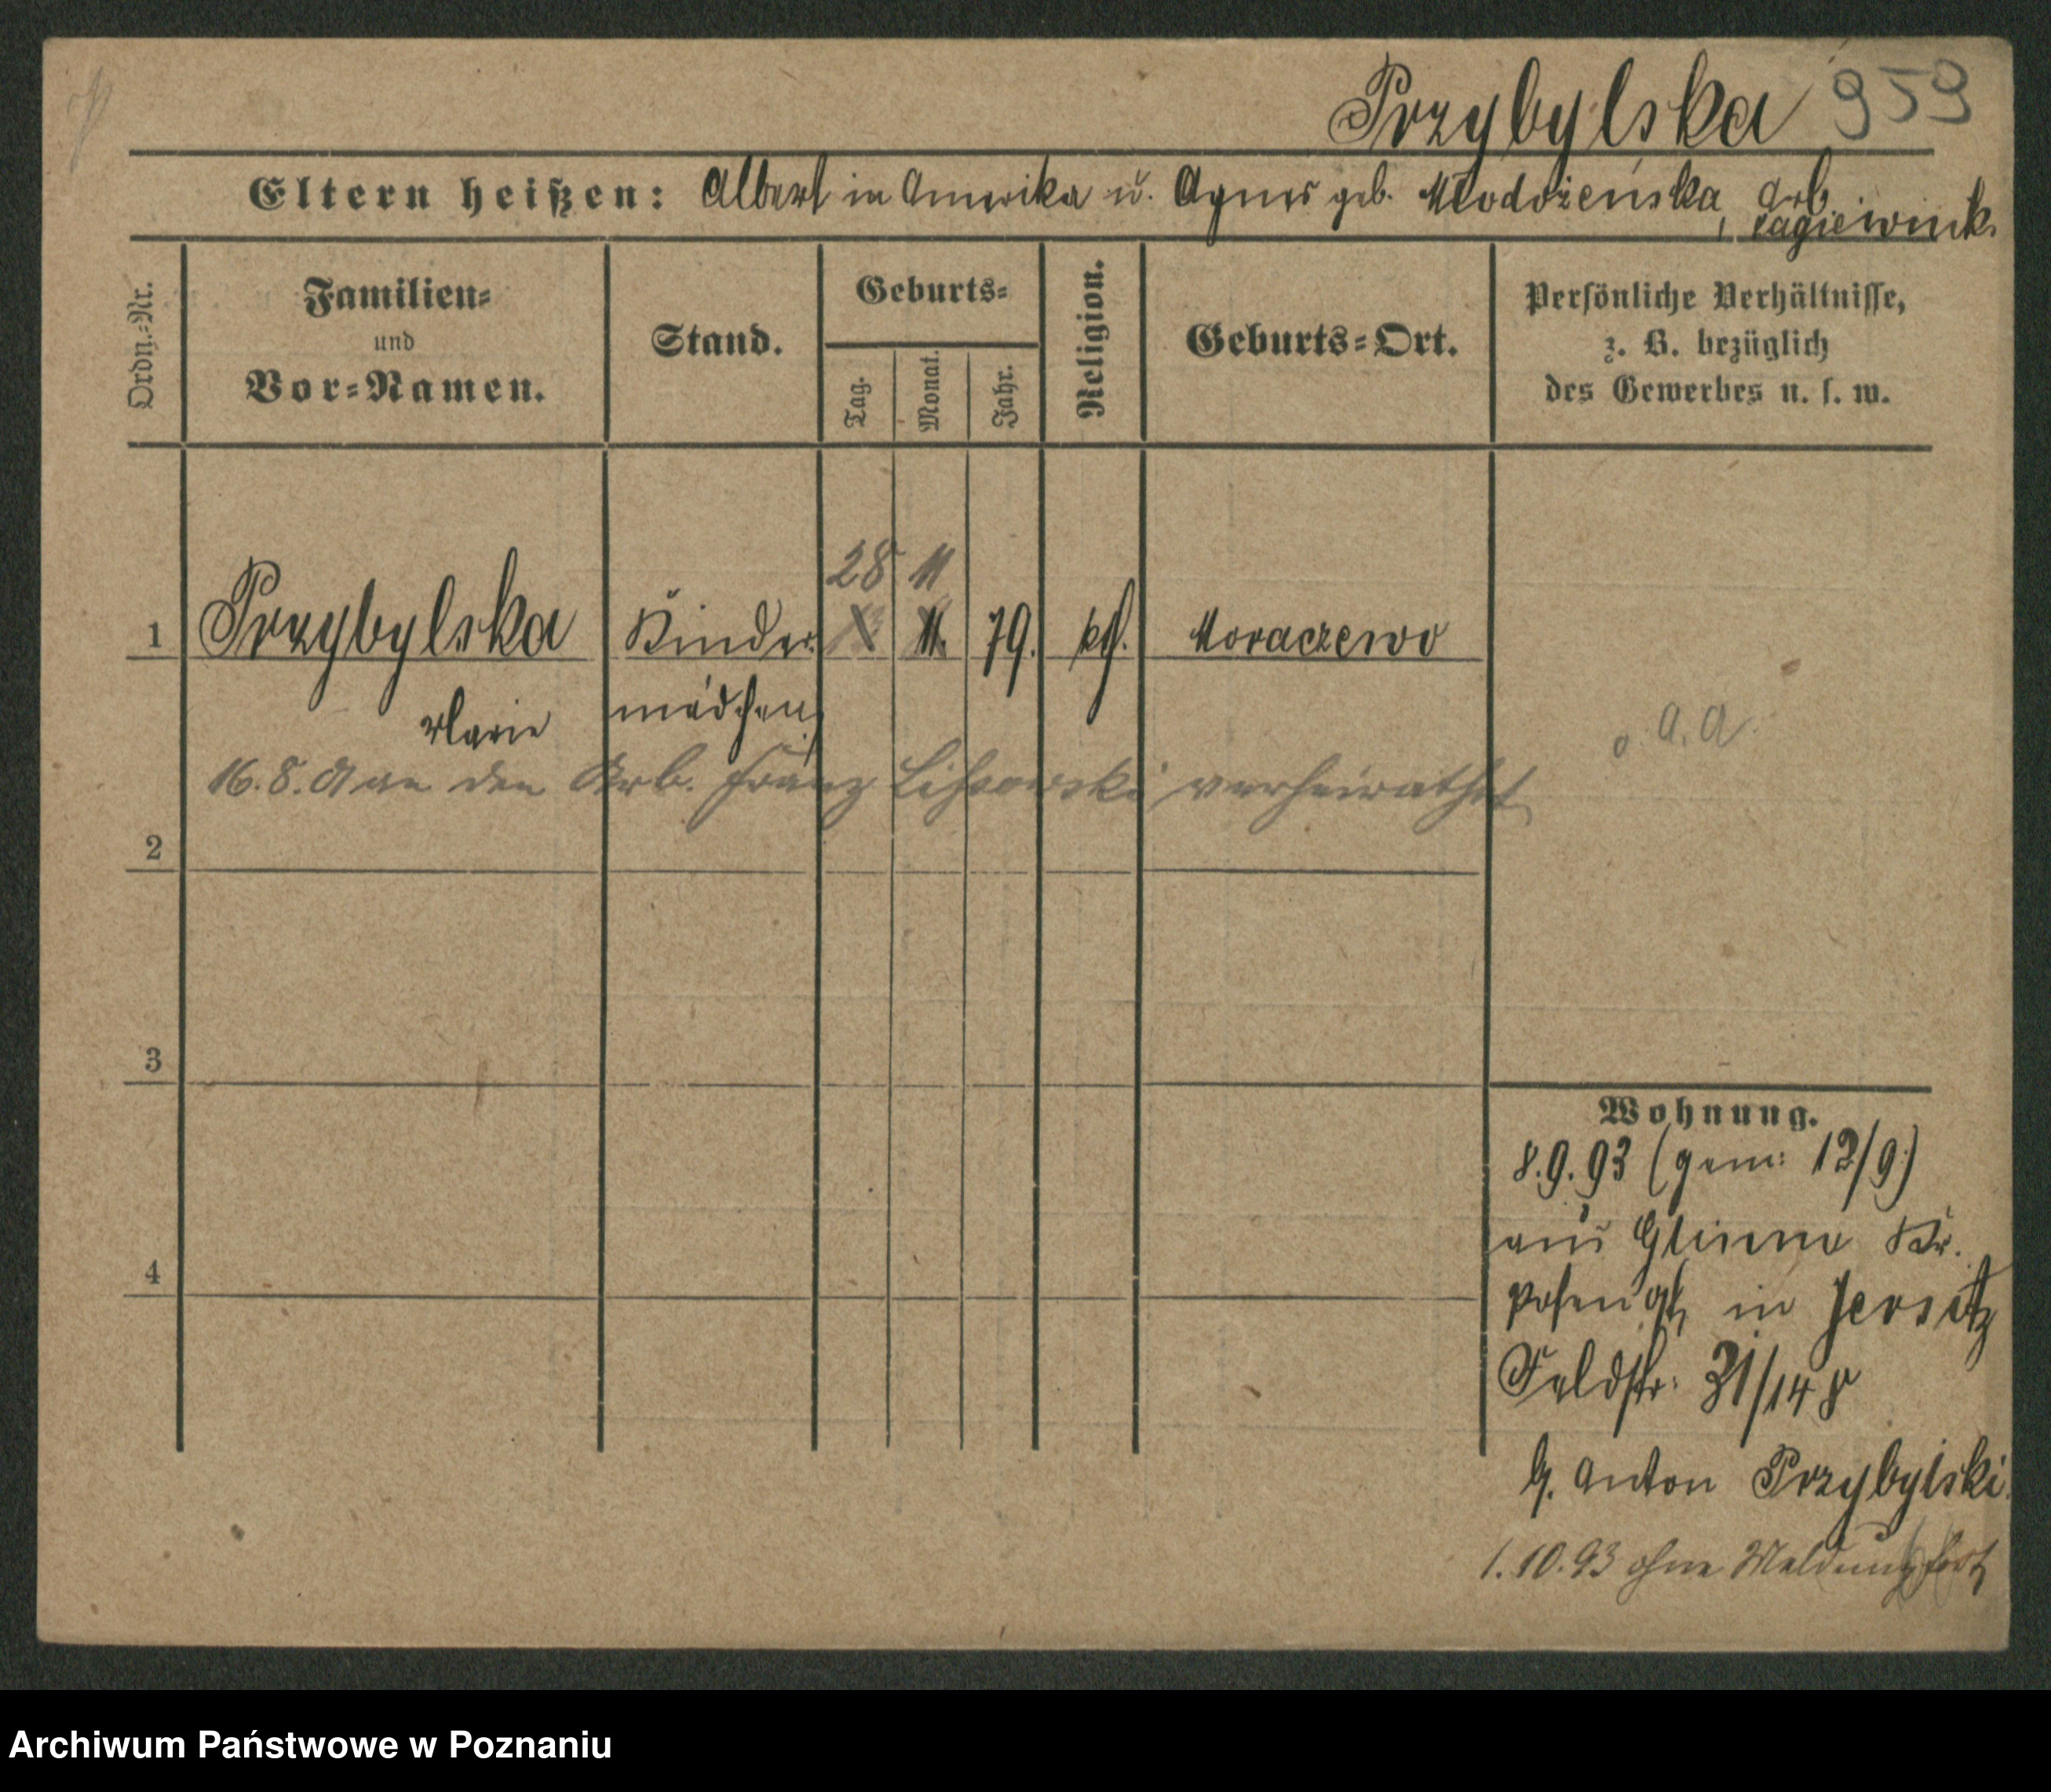 Przybylska 959
Eltern heißen: Albert in Amerika u. Agnes geb. Młodożeńska, Arb.
Łagiewnik.
Ordn.-Nr.
Familien-
und
Vor-Namen.
Stand.
Geburts-
Tag.
Monat.
Jahr.
Religion.
Geburts-Ort.
Persönliche Verhältnisse,
z. B. bezüglich
des Gewerbes u. s. w.
28 11
1 Przybylska Kinder 11. 79. kth. Moraczewo
Marie mädchen
o. A. A.
16. 8. 01 an den Arb. Franz Lissowski verheirathet
2
3
4
Wohnung.
8.9.93 (gem: 12/9.)
aus Glinno Kr.
Posen Ost, in Jersitz
Feldstr. 31/14 p
b. Anton Przybylski.
1.10.93 ohne Meldung fort
Archiwum Państwowe w Poznaniu